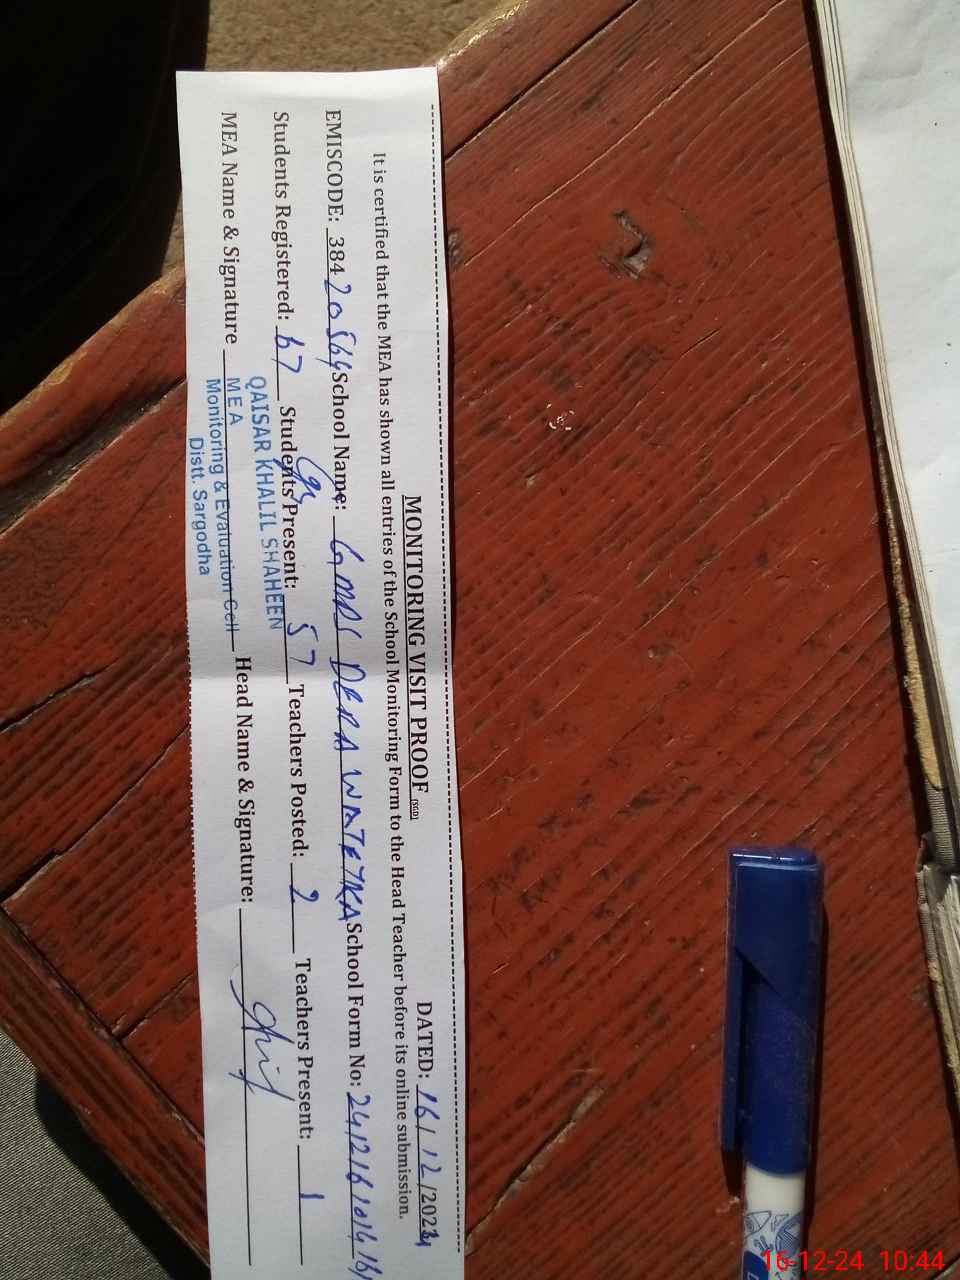 MONITORING VISIT PROOF (SGD) DATED: 16/12/2024
It is certified that the MEA has shown all entries of the School Monitoring Form to the Head Teacher before its online submission.
EMISCODE: 38420564 School Name: GMPS DERA WATEYKA School Form No:
Students Registered: 67 Students Present: 57 Teachers Posted: 2 Teachers Present: 1
MEA Name & Signature Head Name & Signature:
QAISAR KHALIL SHAHEEN
MEA
Monitoring & Evaluation Cell
Distt. Sargodha
16-12-24 10:44